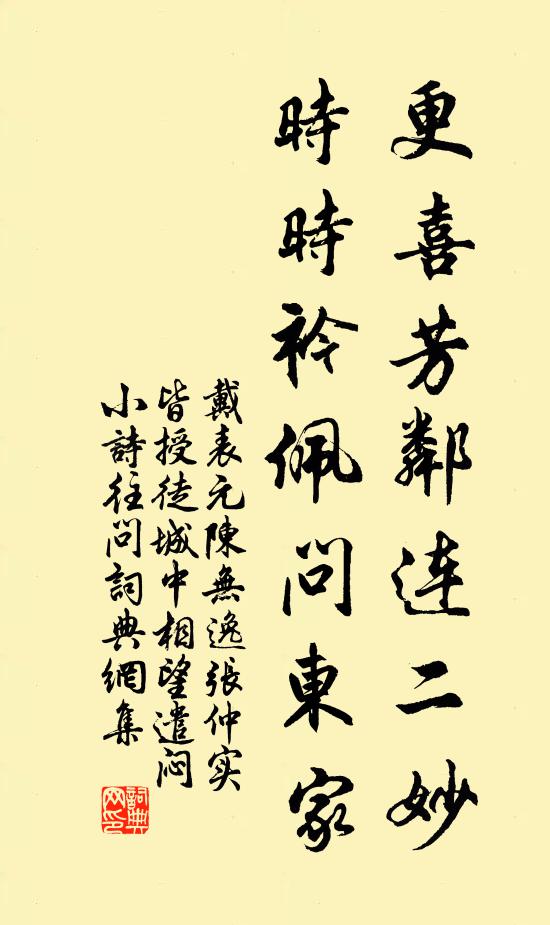 更喜芳鄰连二妙
時時衿佩問東家
戴表元陳無逸張仲实
皆授徒城中相望遣闷
小詩往问詞典網集
詞典
网印